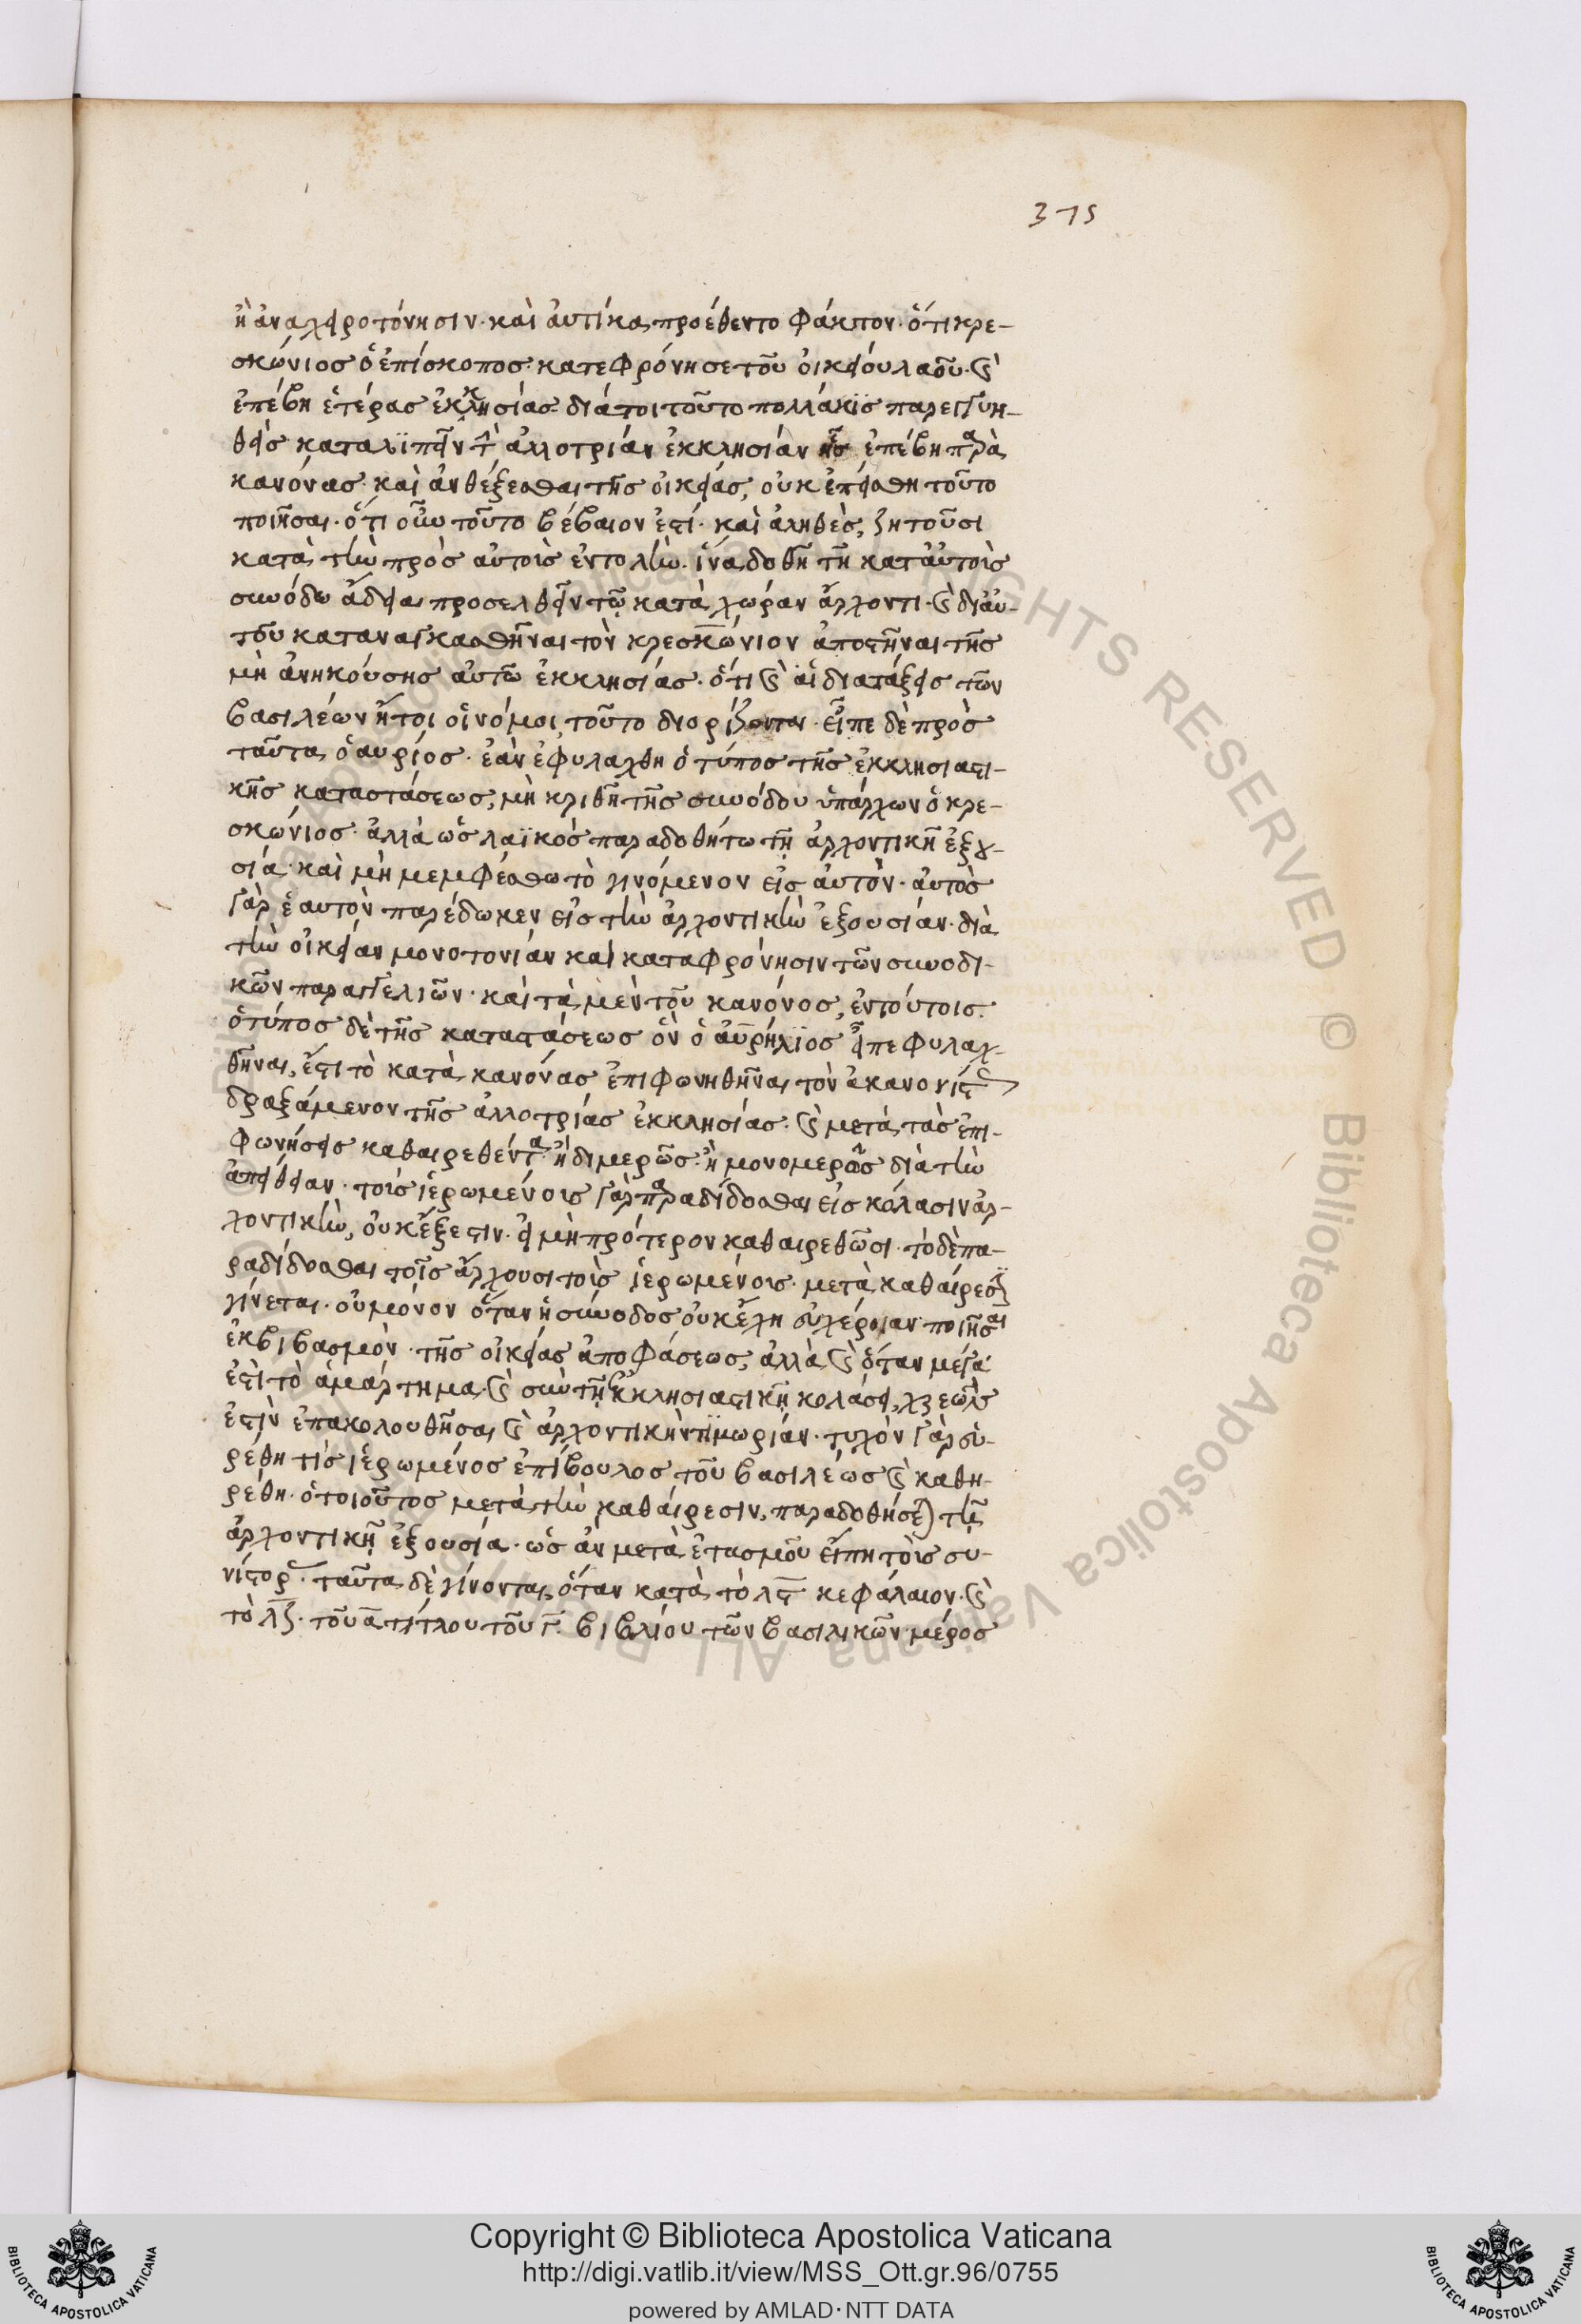 375
ἢ ἀναχειροτόνησιν· καὶ αὐτίκα προέθεντο φάκτον· ὅτι κρε-
σκώνιος ὁ ἐπίσκοπος κατεφρόνησε τοῦ οἰκείου λαοῦ· καὶ
ἐπέβη ἑτέρας ἐκκλησίας· διά τοι τοῦτο πολλάκις παρεγγυη-
θεὶς καταλιπεῖν τὴν ἀλλοτρίαν ἐκκλησίαν ἧς ἐπέβη παρὰ
κανόνας· καὶ ἀνθέξεσθαι τῆς οἰκείας, οὐκ ἐπείσθη τοῦτο
ποιῆσαι· ὅτι οὖν τοῦτο βέβαιον ἐστί· καὶ ἀληθὲς, ζητοῦσι
κατὰ τὴν πρὸς αὐτοὶς ἐντολὴν· ἵνα δοθῆ τῆ κατ' αὐτοὶς
συνόδω ἄδεια προσελθεῖν τῶ κατὰ χώραν ἄρχοντι· καὶ δι' αὐ-
τοῦ καταναγκασθῆναι τὸν κρεσκώνιον ἀποστῆναι τῆς
μὴ ἀνηκούσης αὐτῶ ἐκκλησίας· ὅτι καὶ αἱ διατάξεις τῶν
βασιλέων ἤτοι οἱ νόμοι τοῦτο διορίζονται· εἶπε δὲ πρὸς
ταῦτα ὁ αυρίος· ἐὰν ἐφυλαχθη ὁ τύπος τῆς ἐκκλησιαστι-
κῆς καταστάσεως, μὴ κριθῆ τῆς συνόδου ὑπάρχων ὁ κρε-
σκώνιος· ἀλλὰ ὡς λαϊκὸς παραδοθήτω τῆ ἀρχοντικῆ ἐξου-
σία· καὶ μὴ μεμφέσθω τὸ γινόμενον εἰς αὐτὸν· αὐτὸς
γὰρ ἑαυτὸν παρέδωκεν εἰς τὴν ἀρχοντικὴν ἐξουσίαν· διὰ
τὴν οἰκείαν μονοτονίαν καὶ καταφρόνησιν τῶν συνοδι-
κῶν παραγγελιῶν· καὶ τὰ μὲν τοῦ κανόνος, ἐν τούτοις.
ὁ τύπος δὲ τῆς καταστάσεως ὃν ὁ αὐρήλιος εἶπε φυλαχ-
θῆναι, ἔστι τὸ κατὰ κανόνας ἐπιφωνηθῆναι τὸν ἀκανονίστως
δραξάμενον τῆς ἀλλοτρίας ἐκκλησίας· καὶ μετὰ τὰς ἐπι-
φωνήσεις καθαιρεθέντα ἢ διμερῶς· ἢ μονομερῶς διὰ τὴν
ἀπείθειαν· τοῖς ἱερωμένοις γὰρ παραδίδοσθαι εἰς κόλασιν ἀρ-
χοντικὴν, οὐκ ἔξεστιν· εἰ μὴ πρότερον καθαιρεθῶσι· τὸ δὲ πα-
ραδίδοσθαι τοῖς ἄρχουσι τοὶς ἱερωμένοις μετὰ καθαίρεσιν
γίνεται· οὐ μόνον ὅταν ἡ σύνοδος οὐκ ἔχη εὐχέρειαν ποιῆσαι
ἐκβιβασμὸν τῆς οἰκείας ἀποφάσεως, ἀλλὰ καὶ ὅταν μέγα
ἐστὶ τὸ ἁμάρτημα· καὶ σὺν τῆ ἐκκλησιαστικῆ κολάσει, χρεὼν
ἐστὶν ἐπακολουθῆσαι καὶ ἀρχοντικὴν τιμωρίαν· τυχὸν γὰρ εὑ-
ρέθη τὶς ἱερωμένος ἐπίβουλος τοῦ βασιλέως καὶ καθη-
ρέθη· ὁ τοιοῦτος μετὰ τὴν καθαίρεσιν, παραδοθήσεται τῆ
ἀρχοντικῆ ἐξουσία· ὡς ἂν μετὰ ἐτασμοῦ εἴπη τοὶς συ-
νίστορ· ταῦτα δὲ γίνονται ὅταν κατὰ τὸ λϛ κεφάλαιον· καὶ
τὸ λζ· τοῦ α τίτλου τοῦ γ· βιβλίου τῶν βασιλικῶν μέρος
Copyright © Biblioteca Apostolica Vaticana
http://digi.vatlib.it/view/MSS_Ott.gr.96/0755
powered by AMLAD·NTT DATA